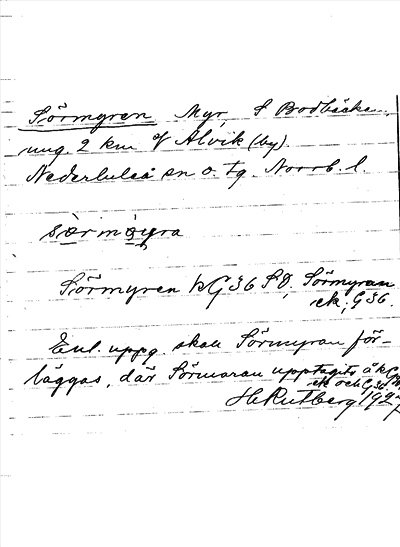 Sörmyren Myr, S Bodbäcken,
ung. 2 km Alvik (by).
Nederluleå sn o. tg. Norrb. l.
sörmöyra
Sörmyren kG36 SO, Sörmyran
ek; G36.
Enl. uppg. skall Sörmyran för-
läggas, där Sörmoran upptagits å kG36
ek och G36.
H Rutberg 1927